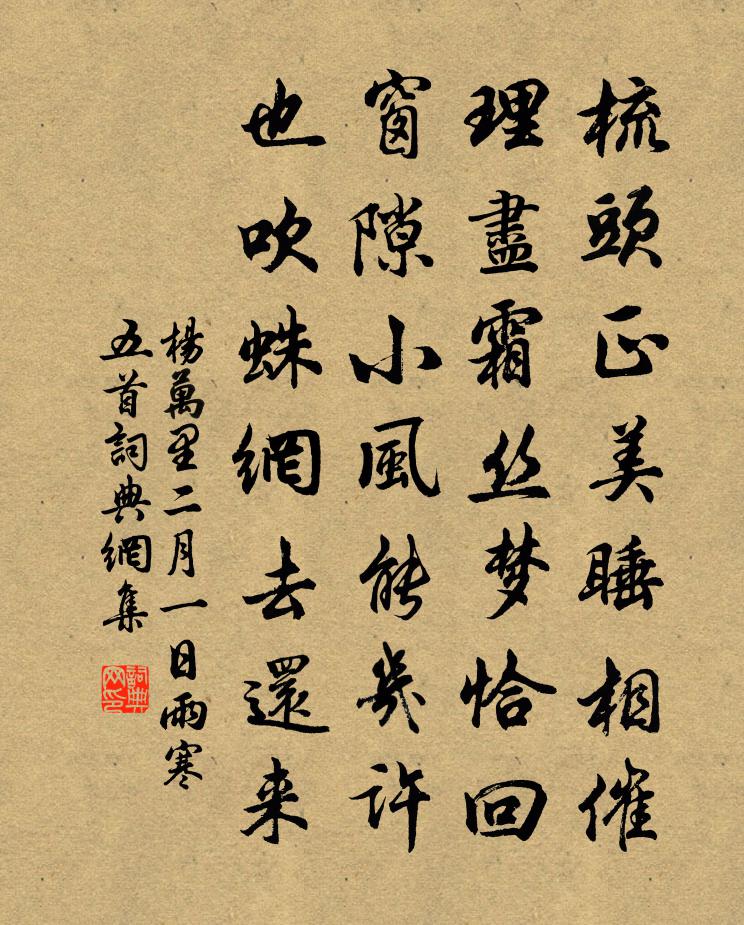 梳頭正美睡相催
理盡霜丝梦恰回
窗隙小風能幾許
也吹蛛網去還来
楊萬里二月一日雨寒
五首詞典網集
詞典网印